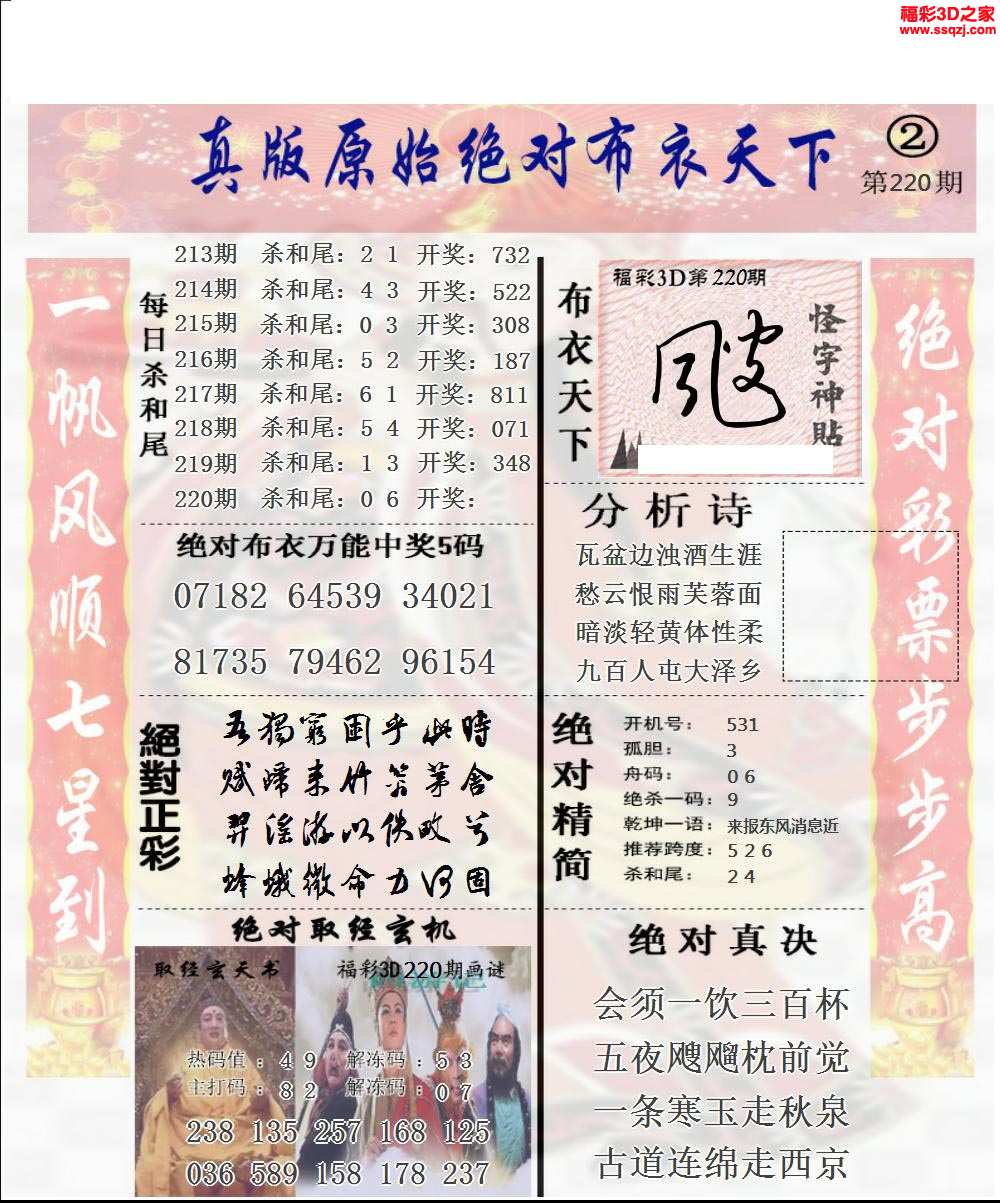 福彩3D之家
www.ssqzj.com
真版原始绝对布衣天下
②
第220期
一帆风顺七星到
每日杀和尾
213期 杀和尾：2 1 开奖：732
214期 杀和尾：4 3 开奖：522
215期 杀和尾：0 3 开奖：308
216期 杀和尾：5 2 开奖：187
217期 杀和尾：6 1 开奖：811
218期 杀和尾：5 4 开奖：071
219期 杀和尾：1 3 开奖：348
220期 杀和尾：0 6 开奖：
绝对布衣万能中奖5码
07182 64539 34021
81735 79462 96154
絕對正彩
吾獨窮困乎此時
賦歸来竹笞茅舍
羿淫游以佚畋兮
蜂蛾微命力何固
绝对取经玄机
取经玄天书
福彩3D220期画谜
热码值：4 9 解冻码：5 3
主打码：8 2 解冻码：0 7
238 135 257 168 125
036 589 158 178 237
布衣天下
福彩3D第220期
颇怪字神贴
分析诗
瓦盆边浊酒生涯
愁云恨雨芙蓉面
暗淡轻黄体性柔
九百人屯大泽乡
绝对精简
开机号： 531
孤胆： 3
舟码： 0 6
绝杀一码：9
乾坤一语：来报东风消息近
推荐跨度：5 2 6
杀和尾： 2 4
绝对真决
会须一饮三百杯
五夜飕飗枕前觉
一条寒玉走秋泉
古道连绵走西京
绝对彩票步步高